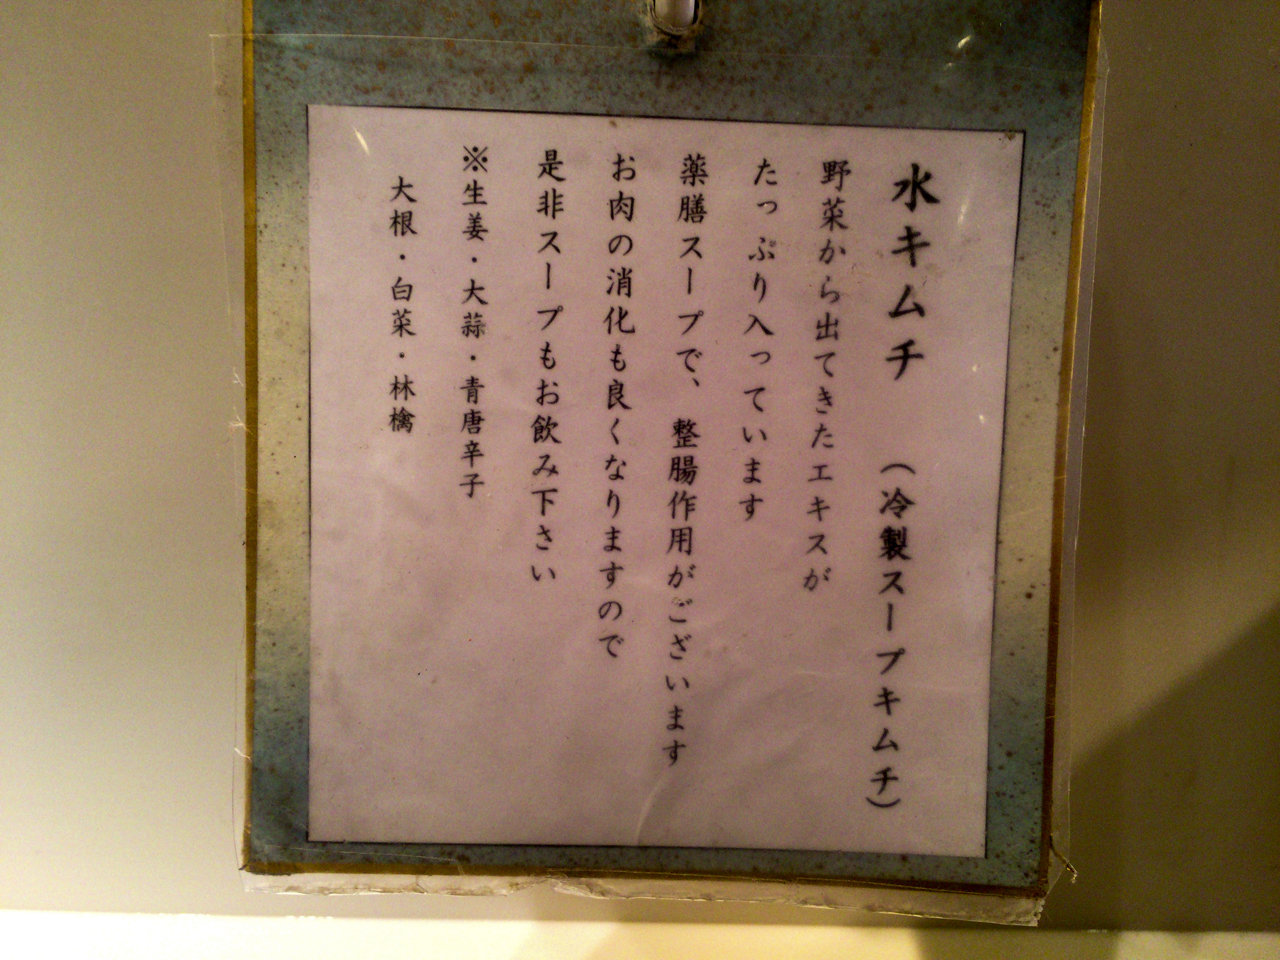 水キムチ　（冷製スープキムチ）
野菜から出てきたエキスが
たっぷり入っています
薬膳スープで、整腸作用がございます
お肉の消化も良くなりますので
是非スープもお飲み下さい
※生姜・大蒜・青唐辛子
大根・白菜・林檎